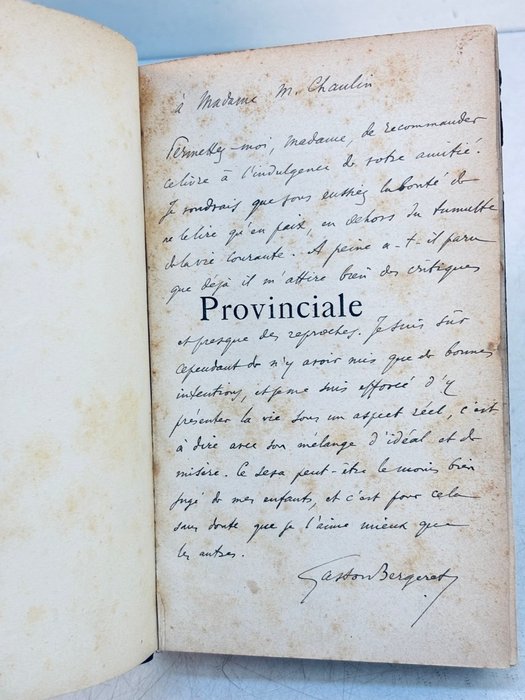 à Madame M. Chaulin
Permettez-moi, Madame, de recommander
ce livre à l'indulgence de votre amitié.
Je voudrais que vous eussiez la bonté de
ne le lire qu'en paix, en dehors du tumulte
de la vie courante. A peine a-t-il paru
que déjà il m'attire bien des critiques
Provinciale
et presque des reproches. Je suis sûr
cependant de n'y avoir mis que de bonnes
intentions, et je me suis efforcé d'y
présenter la vie sous un aspect réel, c'est
à dire avec son mélange d'idéal et de
misère. Ce sera peut-être le moins bien
jugé de mes enfants, et c'est pour cela
sans doute que je l'aime mieux que
les autres.
Gaston Bergeret